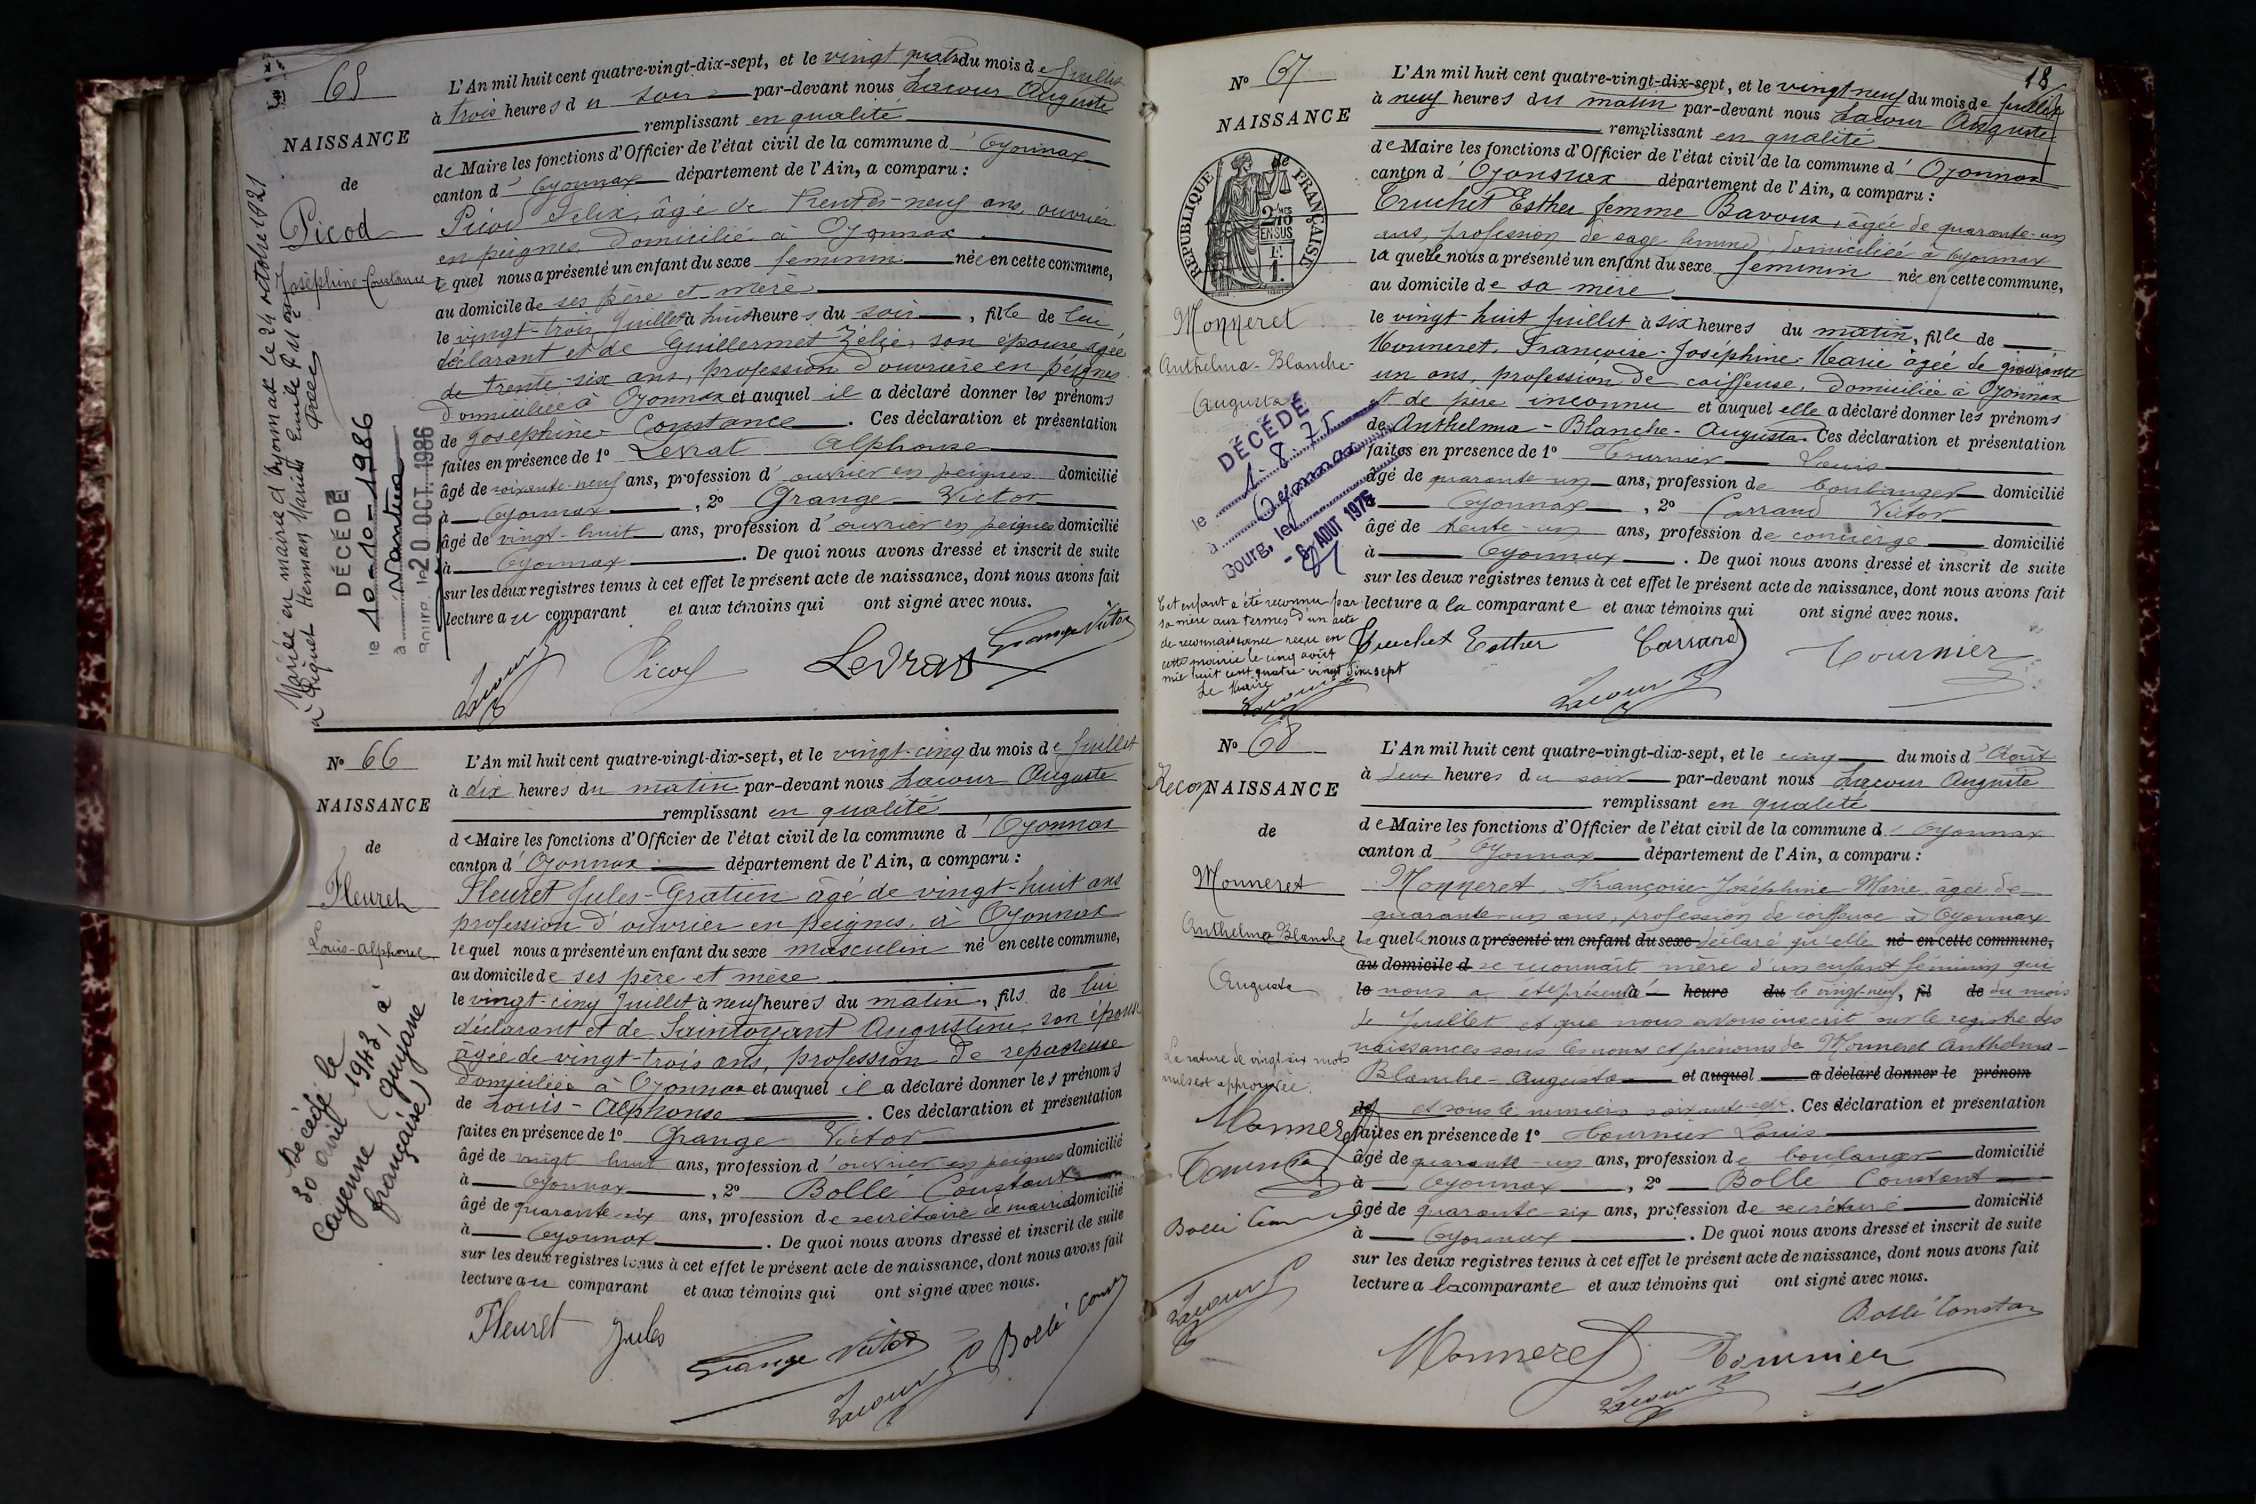 65
NAISSANCE
de
Picod
Joséphine-Constance
Mariée en mairie d'Oyonnax le 24 octobre 1921
à Piquet Herman Marius Emile
DÉCÉDÉ
le 10-10-1986
à Nantua
Bourg, le 20 OCT. 1986
L'An mil huit cent quatre-vingt-dix-sept, et le vingt quatre du mois de Juillet
à trois heures du soir par-devant nous Lacour Auguste
remplissant en qualité
de Maire les fonctions d'Officier de l'état civil de la commune d'Oyonnax
canton d'Oyonnax département de l'Ain, a comparu :
Picod Félix, âgé de trente-neuf ans, ouvrier
en peignes domicilié à Oyonnax
lequel nous a présenté un enfant du sexe féminin née en cette commune,
au domicile de ses père et mère
le vingt-trois Juillet à huit heures du soir, fille de lui
déclarant et de Guillermet Zélie, son épouse âgée
de trente-six ans, profession d'ouvrière en peignes
domiciliée à Oyonnax et auquel il a déclaré donner les prénoms
de Joséphine Constance. Ces déclaration et présentation
faites en présence de 1° Levrat Alphonse
âgé de soixante-neuf ans, profession d'ouvrier en peignes domicilié
à Oyonnax, 2° Grange Victor
âgé de vingt-huit ans, profession d'ouvrier en peignes domicilié
à Oyonnax. De quoi nous avons dressé et inscrit de suite
sur les deux registres tenus à cet effet le présent acte de naissance, dont nous avons fait
lecture au comparant et aux témoins qui ont signé avec nous.
Lacour Picod Levrat Grange Victor
N° 66
NAISSANCE
de
Fleuret
Louis-Alphonse
Décédé le
30 avril 1943, à
Cayenne (Guyane
française)
L'An mil huit cent quatre-vingt-dix-sept, et le vingt-cinq du mois de Juillet
à dix heures du matin par-devant nous Lacour Auguste
remplissant en qualité
de Maire les fonctions d'Officier de l'état civil de la commune d'Oyonnax
canton d'Oyonnax département de l'Ain, a comparu :
Fleuret Jules-Gratien âgé de vingt-huit ans
profession d'ouvrier en peignes, à Oyonnax
lequel nous a présenté un enfant du sexe masculin né en cette commune,
au domicile de ses père et mère
le vingt-cinq Juillet à neuf heures du matin, fils de lui
déclarant et de Saintoyant Augustine son épouse
âgée de vingt-trois ans, profession de repasseuse
domiciliée à Oyonnax et auquel il a déclaré donner les prénoms
de Louis-Alphonse. Ces déclaration et présentation
faites en présence de 1° Grange Victor
âgé de vingt huit ans, profession d'ouvrier en peignes domicilié
à Oyonnax, 2° Bollé Constant
âgé de quarante-six ans, profession de secrétaire de mairie domicilié
à Oyonnax. De quoi nous avons dressé et inscrit de suite
sur les deux registres tenus à cet effet le présent acte de naissance, dont nous avons fait
lecture au comparant et aux témoins qui ont signé avec nous.
Fleuret Jules Grange Victor Lacour Bollé Const
18
N° 67
NAISSANCE
de
RÉPUBLIQUE FRANÇAISE
2/10MES
EN SUS
Monneret
Anthelma-Blanche-
Augusta
DÉCÉDÉ
le 1-8-75
à Oyonnax
Bourg, le - 8 AOUT 1975
Cet enfant a été reconnu par
sa mère aux termes d'un acte
de reconnaissance reçu en
cette mairie le cinq août
mil huit cent quatre-vingt dix-sept
Le Maire
Lacour
L'An mil huit cent quatre-vingt-dix-sept, et le vingt neuf du mois de Juillet
à neuf heures du matin par-devant nous Lacour Auguste
remplissant en qualité
de Maire les fonctions d'Officier de l'état civil de la commune d'Oyonnax
canton d'Oyonnax département de l'Ain, a comparu :
Truchet Esther femme Bavoux, âgée de quarante-un
ans, profession de sage femme, domiciliée à Oyonnax
laquelle nous a présenté un enfant du sexe féminin née en cette commune,
au domicile de sa mère
le vingt-huit Juillet à six heures du matin, fille de
Monneret, Françoise-Joséphine-Marie âgée de quarante
un ans, profession de coiffeuse, domiciliée à Oyonnax
et de père inconnu et auquel elle a déclaré donner les prénoms
de Anthelma-Blanche-Augusta. Ces déclaration et présentation
faites en présence de 1° Tournier Louis
âgé de quarante-un ans, profession de boulanger domicilié
à Oyonnax, 2° Carrand Victor
âgé de trente-un ans, profession de concierge domicilié
à Oyonnax. De quoi nous avons dressé et inscrit de suite
sur les deux registres tenus à cet effet le présent acte de naissance, dont nous avons fait
lecture a la comparante et aux témoins qui ont signé avec nous.
Truchet Esther Carrand Tournier
Lacour
N° 68
Recon NAISSANCE
de
Monneret
Anthelma Blanche
Augusta
La rature de vingt-six mots
nuls est approuvée.
Monneret
Tournier
Bollé Const
Lacour
L'An mil huit cent quatre-vingt-dix-sept, et le cinq du mois d'Août
à deux heures du soir par-devant nous Lacour Auguste
remplissant en qualité
de Maire les fonctions d'Officier de l'état civil de la commune d'Oyonnax
canton d'Oyonnax département de l'Ain, a comparu :
Monneret, Françoise-Joséphine-Marie âgée de
quarante-un ans, profession de coiffeuse à Oyonnax
lequelle nous a présenté un enfant du sexe déclaré qu'elle né en cette commune,
au domicile d se reconnaît mère d'un enfant féminin qui
le nous a été présenté à heure du le vingt-neuf, fil de du mois
de Juillet et que nous avons inscrit sur le registre des
naissances sous les noms et prénoms de Monneret Anthelma-
Blanche-Augusta et auquel a déclaré donner le prénom
de et sous le numéro soixante-sept. Ces déclaration et présentation
faites en présence de 1° Tournier Louis
âgé de quarante-un ans, profession de boulanger domicilié
à Oyonnax, 2° Bollé Constant
âgé de quarante-six ans, profession de secrétaire domicilié
à Oyonnax. De quoi nous avons dressé et inscrit de suite
sur les deux registres tenus à cet effet le présent acte de naissance, dont nous avons fait
lecture a la comparante et aux témoins qui ont signé avec nous.
Bollé Constan
Monneret Tournier
Lacour